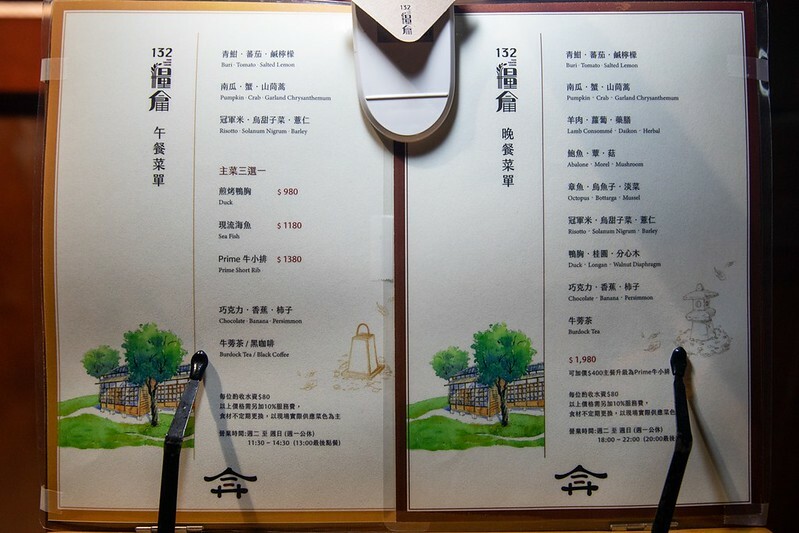 132
糧倉
132
糧倉
午餐菜單
青魽·番茄·鹹檸檬
Buri · Tomato · Salted Lemon
南瓜·蟹·山茼萵
Pumpkin · Crab · Garland Chrysanthemum
冠軍米·烏甜子菜·薏仁
Risotto · Solanum Nigrum · Barley
主菜三選一
煎烤鴨胸 $ 980
Duck
現流海魚 $ 1180
Sea Fish
Prime 牛小排 $ 1380
Prime Short Rib
巧克力·香蕉·柿子
Chocolate · Banana · Persimmon
牛蒡茶 / 黑咖啡
Burdock Tea / Black Coffee
每位酌收水資$80
以上價格需另加10%服務費,
食材不定期更換, 以現場實際供應菜色為主
營業時間:週二 至 週日 (週一公休)
11:30 ~ 14:30 (13:00最後點餐)
132
糧倉
晚餐菜單
青魽·番茄·鹹檸檬
Buri · Tomato · Salted Lemon
南瓜·蟹·山茼萵
Pumpkin · Crab · Garland Chrysanthemum
羊肉·蘿蔔·藥膳
Lamb Consommé · Daikon · Herbal
鮑魚·蕈·菇
Abalone · Morel · Mushroom
章魚·烏魚子·淡菜
Octopus · Bottarga · Mussel
冠軍米·烏甜子菜·薏仁
Risotto · Solanum Nigrum · Barley
鴨胸·桂圓·分心木
Duck · Longan · Walnut Diaphragm
巧克力·香蕉·柿子
Chocolate · Banana · Persimmon
牛蒡茶
Burdock Tea
$ 1,980
可加價$400主餐升級為Prime牛小排
每位酌收水資$80
以上價格需另加10%服務費,
食材不定期更換, 以現場實際供應菜色
營業時間:週二 至 週日 (週一公休)
18:00 ~ 22:00 (20:00最後